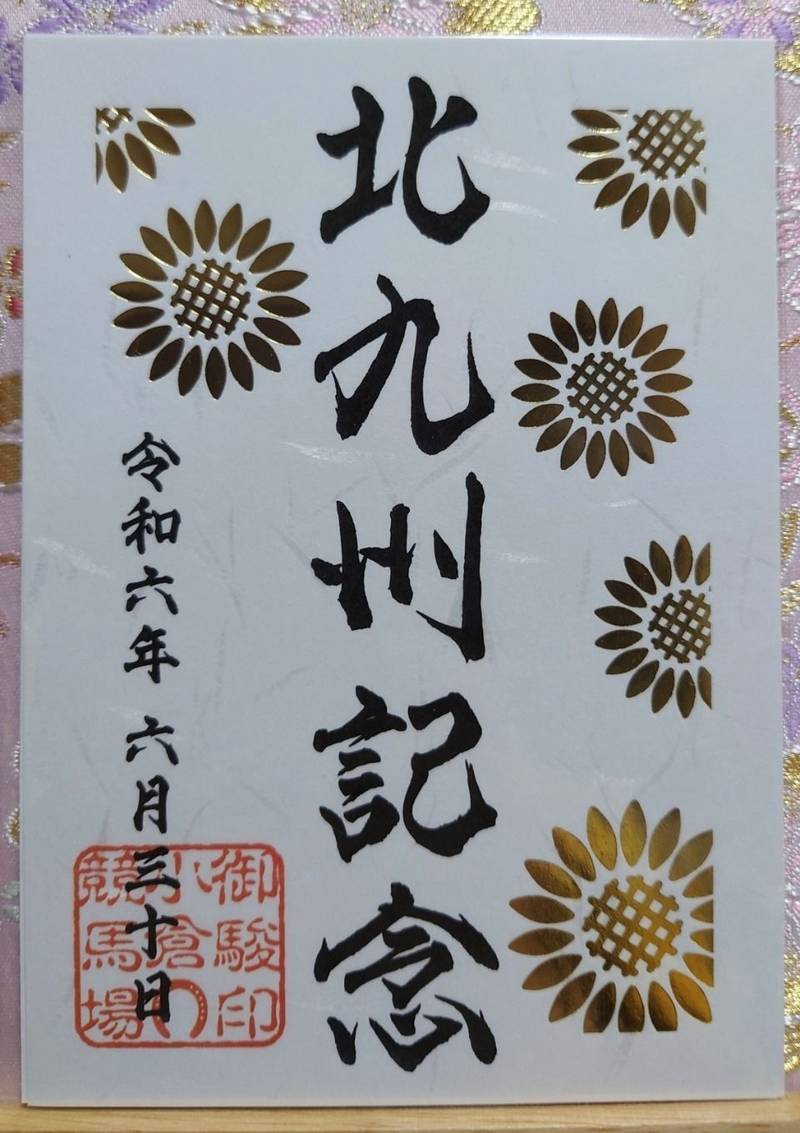 北九州記念
令和六年 六月三十日
御駿印
小倉
競馬場